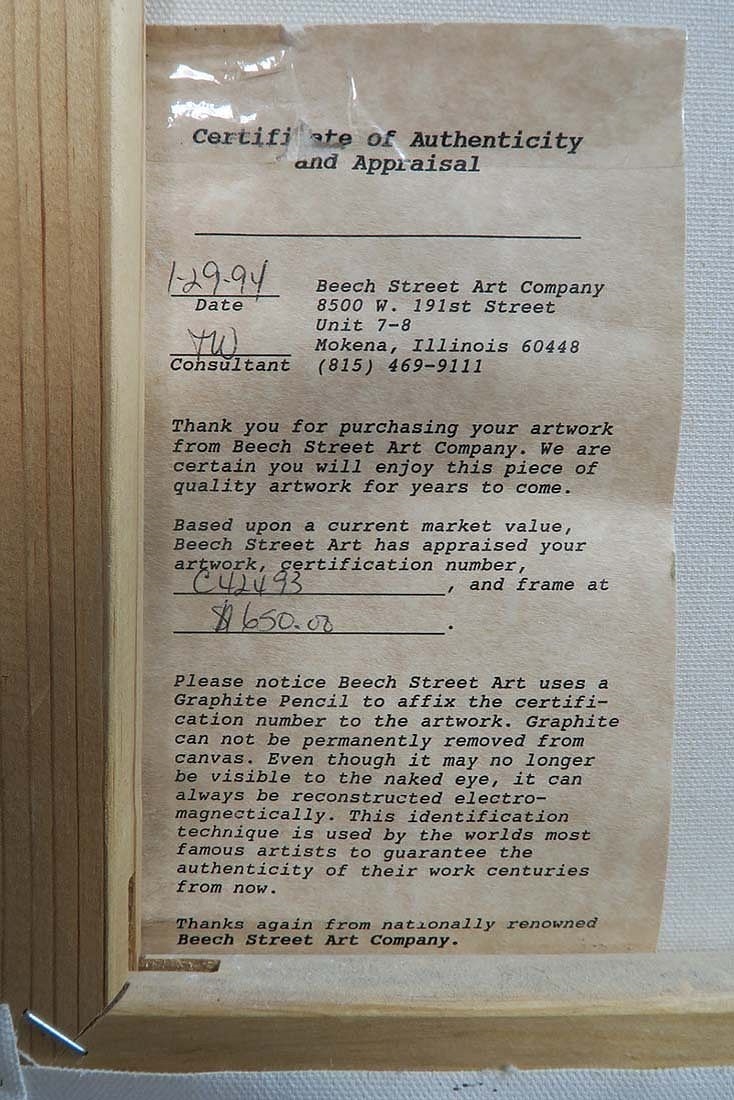 Certificate of Authenticity
and Appraisal
1-29-94
Date
Beech Street Art Company
8500 W. 191st Street
Unit 7-8
Mokena, Illinois 60448
YW
Consultant
(815) 469-9111
Thank you for purchasing your artwork
from Beech Street Art Company. We are
certain you will enjoy this piece of
quality artwork for years to come.
Based upon a current market value,
Beech Street Art has appraised your
artwork, certification number,
C42493, and frame at
$650.00.
Please notice Beech Street Art uses a
Graphite Pencil to affix the certifi-
cation number to the artwork. Graphite
can not be permanently removed from
canvas. Even though it may no longer
be visible to the naked eye, it can
always be reconstructed electro-
magnectically. This identification
technique is used by the worlds most
famous artists to guarantee the
authenticity of their work centuries
from now.
Thanks again from nationally renowned
Beech Street Art Company.